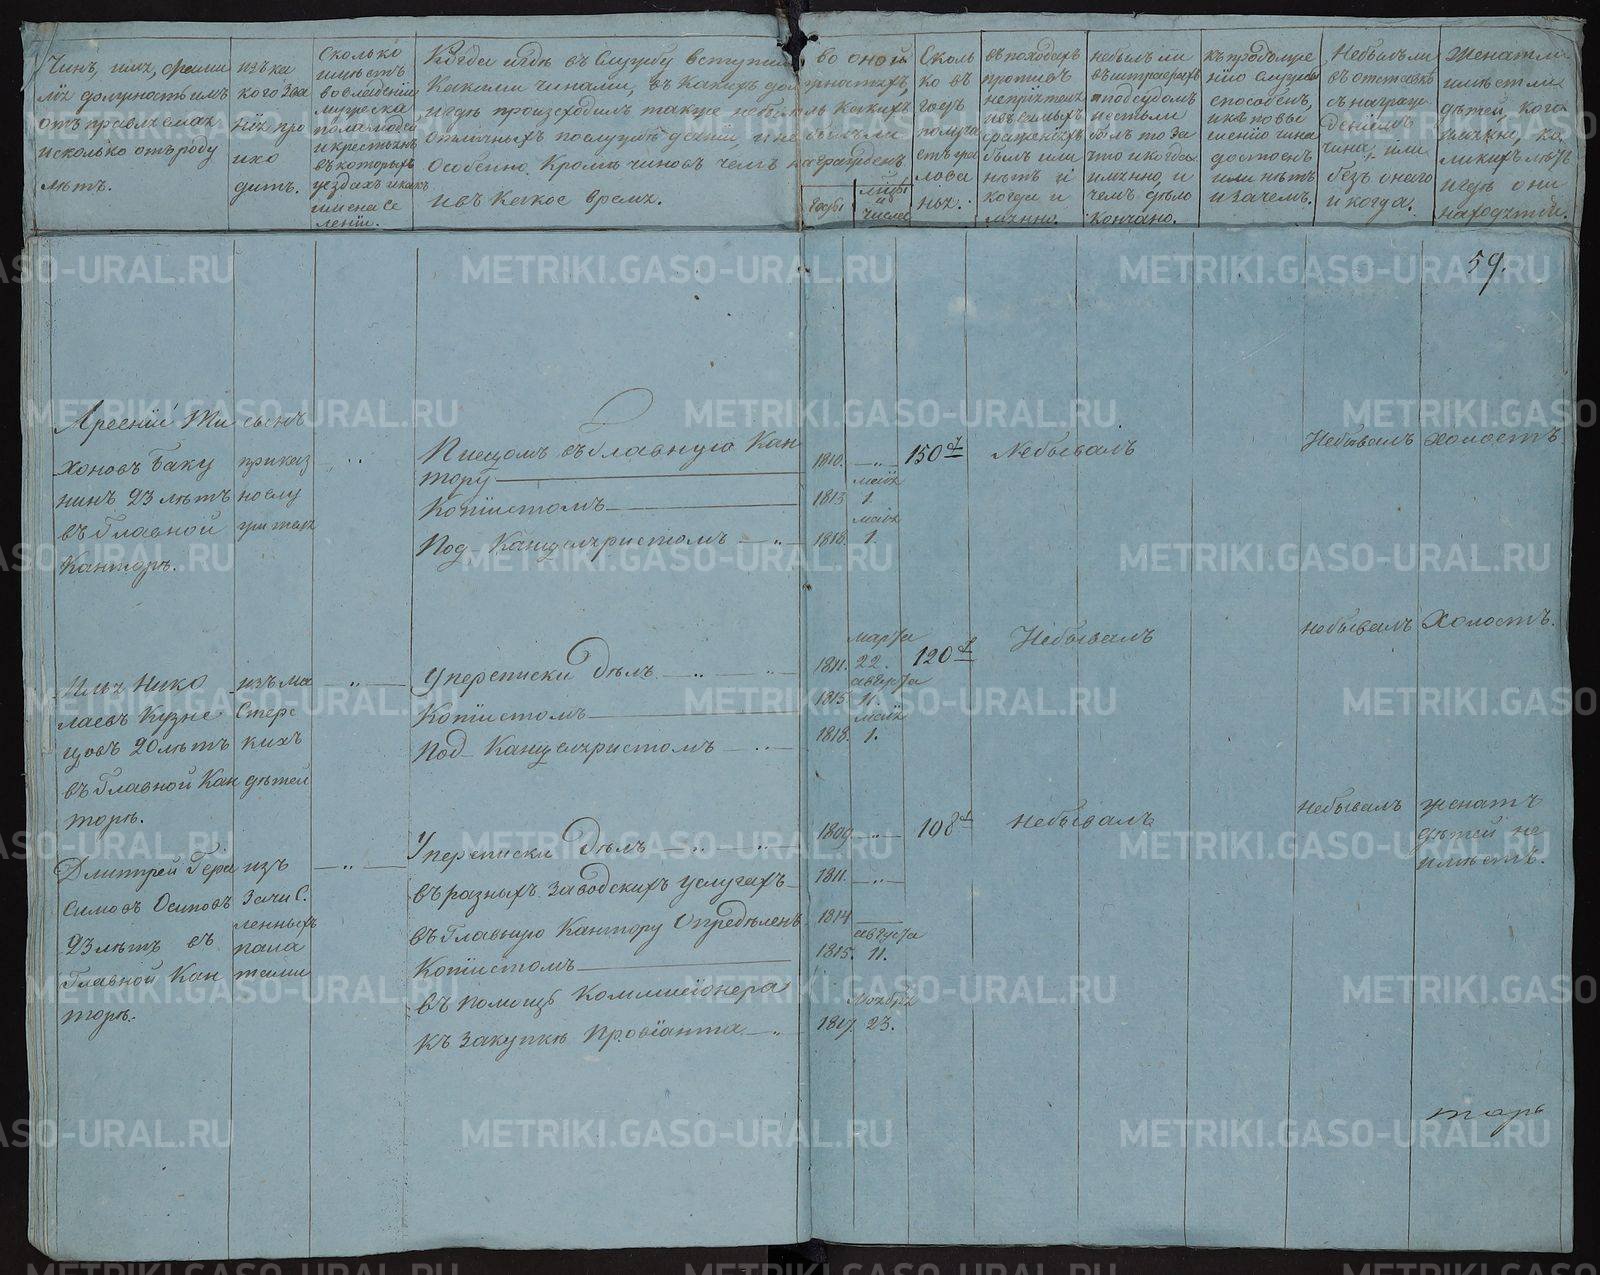 Чинъ, имя, фами
лія должность имъ
отправляемая
и сколько отъ роду
лѣтъ.
изъ ка
кого зва
нія про
исхо
дитъ.
Сколько
имѣетъ
во владѣніи
мужеска
пола людей
и крестьянъ
въ которыхъ
уѣздахъ и какъ
имена се
леніи.
Когда и гдѣ въ службу вступилъ во оной
какими чинами, въ какихъ должностяхъ,
и гдѣ происходилъ также небыло ль какихъ
отличныхъ послужбѣ дѣяній, и не былъ ли
особенно кроме чиновъ чемъ награжденъ
и въ какое время.
Годы
мѣсяцы
и
числа
Сколь
ко въ
годъ
получа
етъ жа
лова
нья.
въ походахъ
противъ
непріятеля
и въ самыхъ
сраженіяхъ
былъ или
нѣтъ и
когда и
имянно.
небылъ ли
въ штрафахъ
и подсудомъ
и естьли
былъ то за
что и когда
имянно и
чемъ дѣло
кончано.
къ продолже
нію службы
способенъ,
и къ повы
шенію чина
достоенъ
или нѣтъ
и зачемъ.
Небылъ ли
въ отставкѣ
съ награж
деніемъ
чина, или
безъ онаго
и когда.
Женатъ ли
имѣетъ ли
дѣтей, кого
имянно, ка
кихъ лѣтъ
и гдѣ они
находятся.
59.
Арсеній Ти
хоновъ Баку
нинъ 23 лѣтъ
въ Главной
Канторѣ.
сынъ
приказ
нослу
жителя
Писцомъ въ Главную Кан
тору
Копіистомъ
Под Канцеляристомъ
1810.
маія
1813 1.
маія
1818. 1.
150
Небывалъ
Небывалъ
холостъ
Илья Нико
лаевъ Кузне
цовъ 20 лѣтъ
въ Главной Кан
торѣ.
изъ ма
стерс
кихъ
дѣтей
У переписки Дѣлъ
Копіистомъ
Под Канцеляристомъ
марта
1811. 22.
августа
1815 11.
маія
1818. 1.
120
Небывалъ
небывалъ
Холостъ.
Дмитрей Гера
симовъ Осиповъ
23 лѣтъ въ
Главной Кан
торѣ.
изъ
зачис
ленныхъ
пала
тами
У переписки Дѣлъ
въ разныхъ заводскихъ услугахъ
въ Главную Кантору Опредѣленъ
Копіистомъ
въ помощь Коммисіонера
къ закупкѣ Провіанта
1809
1811.
1814
августа
1815. 11.
Ноября
1817. 23.
108
небывалъ
небывалъ
женатъ
дѣтей не
имѣетъ.
тарь
METRIKI.GASO-URAL.RU